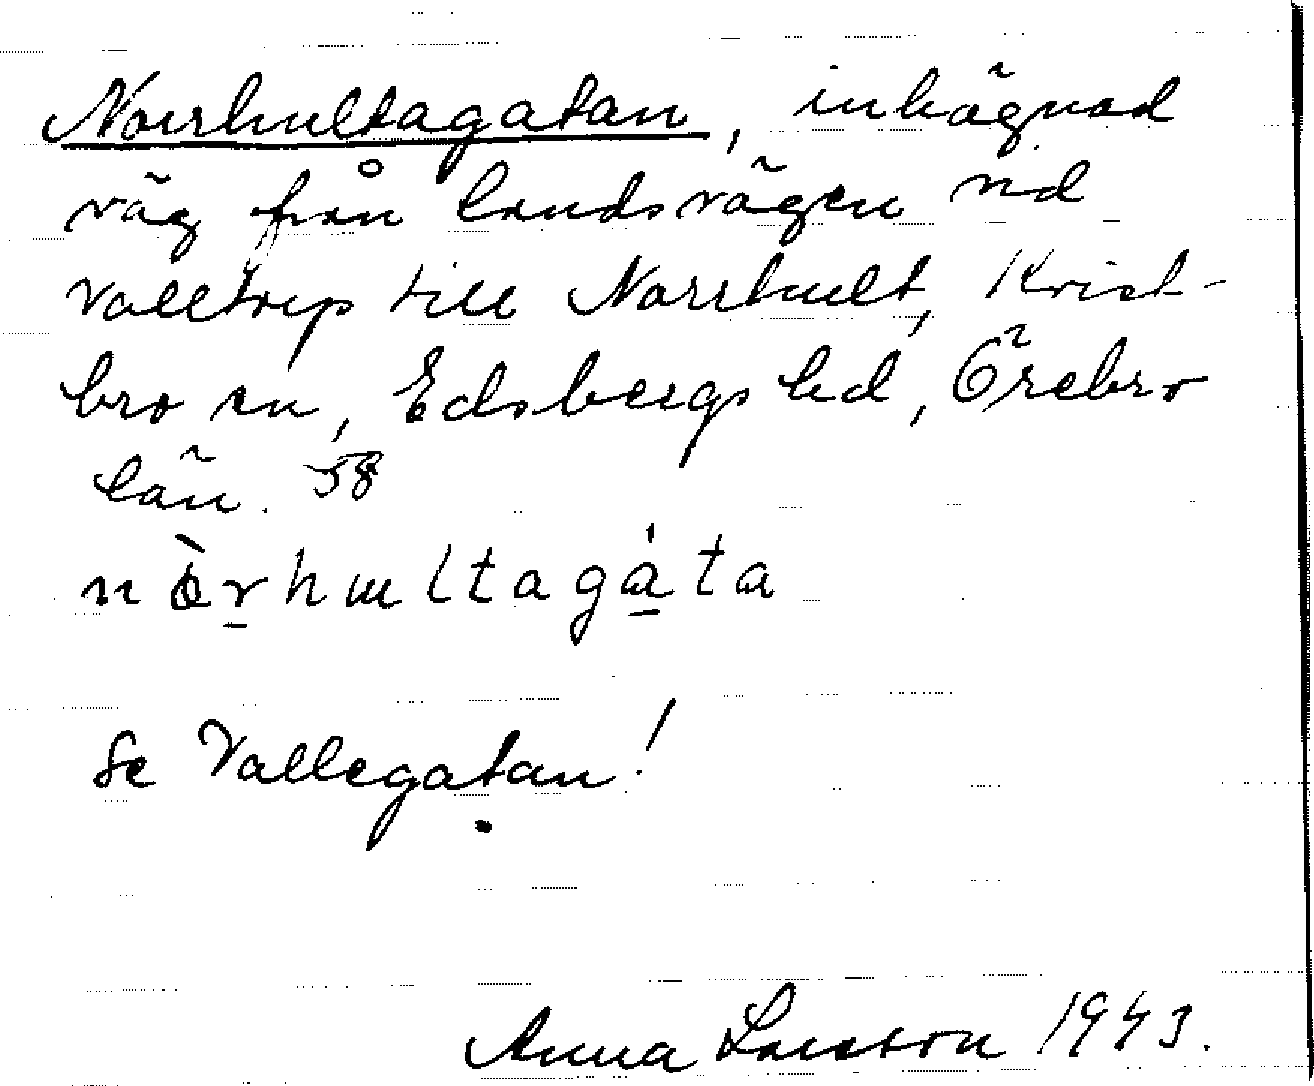 Norrhultagatan, inhägnad
väg från landsvägen vid
Valltorp till Norrhult, Krist-
bro sn, Edsbergs hd, Örebro
län. 58
nòr̲hultagá̲ta
Se Vallegatan!
Anna Larsson 1943.